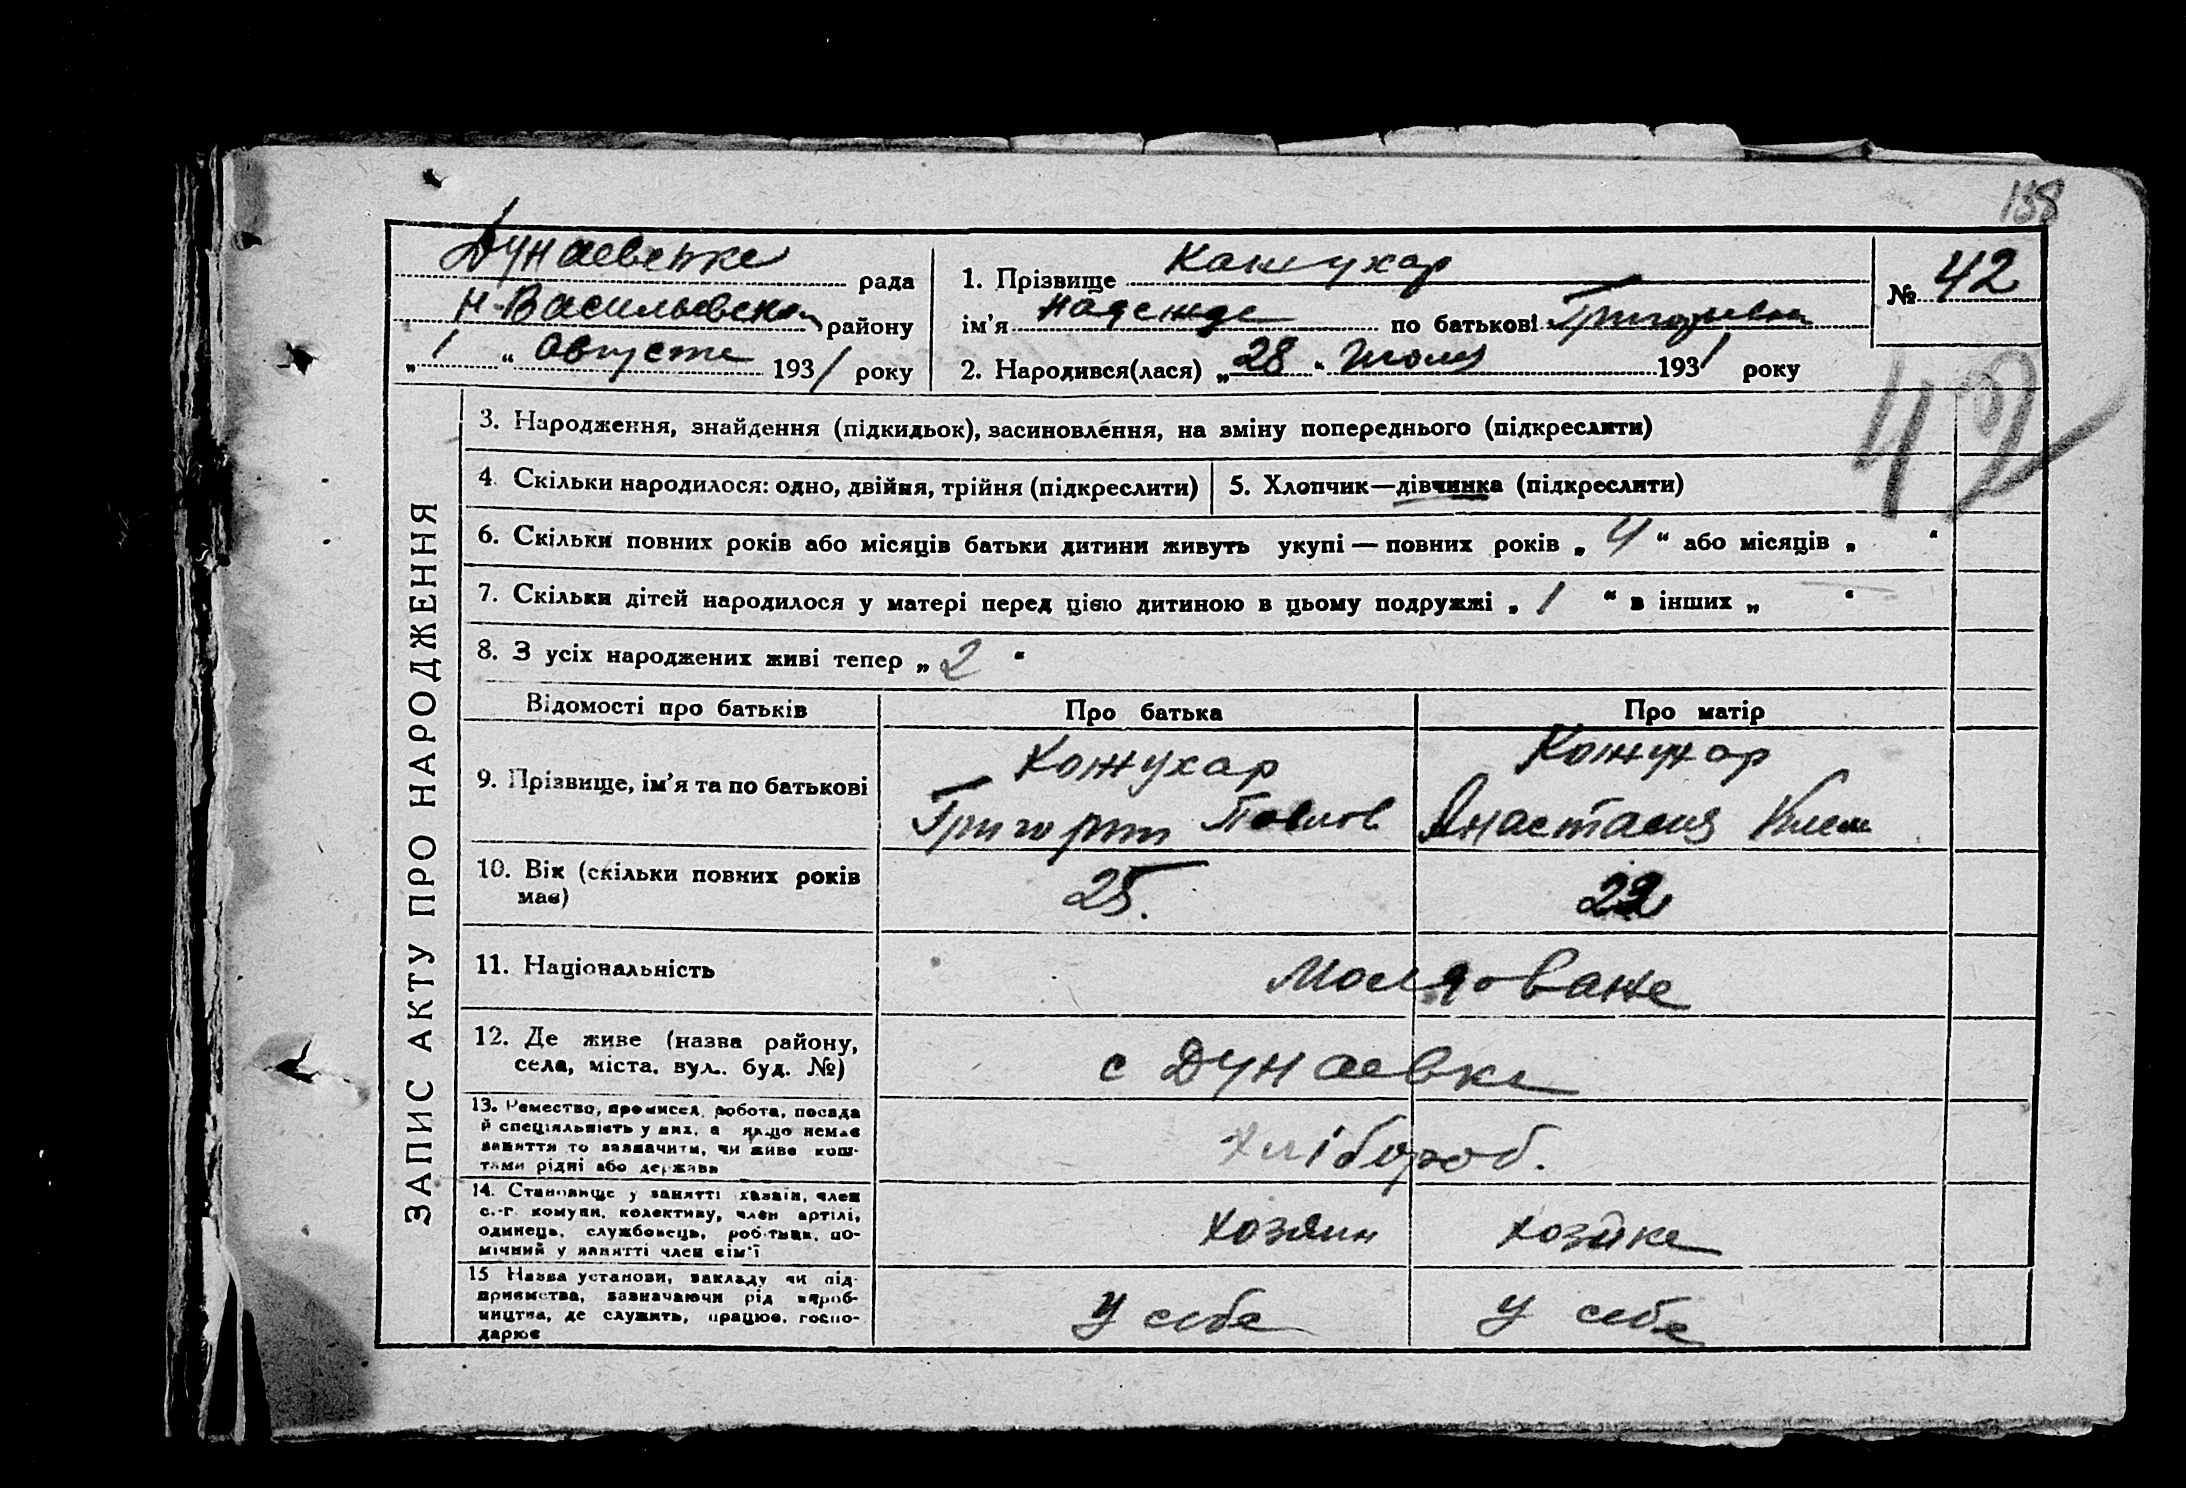 138
Дунаевская рада
Н-Васильевского району
„ 1 “ Августа 1931 року
1. Прізвище Кожухар
ім'я Надежда по батькові Григорьевна
2. Народився(лася) „28“ Июля 1931 року
№ 42
42
ЗАПИС АКТУ ПРО НАРОДЖЕННЯ
3. Народження, знайдення (підкидьок), засиновлення, на зміну попереднього (підкреслити)
4. Скільки народилося: одно, двійня, трійня (підкреслити)
5. Хлопчик—дівчинка (підкреслити)
6. Скільки повних років або місяців батьки дитини живуть укупі — повних років „ 4 “ або місяців „ “
7. Скільки дітей народилося у матері перед цією дитиною в цьому подружжі „ 1 “ в інших „ — “
8. З усіх народжених живі тепер „ 2 “
Відомості про батьків
Про батька
Про матір
9. Прізвище, ім'я та по батькові
Кожухар
Григорий Павлов
Кожухар
Анастасия Клем
10. Вік (скільки повних років
має)
25.
22
11. Національність
Молдоване
12. Де живе (назва району,
села, міста, вул., буд. №)
с Дунаевка
13. Ремество, промисел, робота, посада
й спеціяльність у них, а якщо немає
заняття то зазначити, чи живе кош-
тами рідні або держави
Хлібороб.
14. Становище у занятті хазяїн, член
с.-г. комуни, колективу, член артілі,
одинець, службовець, робітник, по-
мічний у занятті член сім'ї
хозяин
хозяйка
15 Назва установи, закладу чи під-
приємства, зазначаючи рід вироб-
ництва, де служить, працює, госпо-
дарює
у себе
у себе